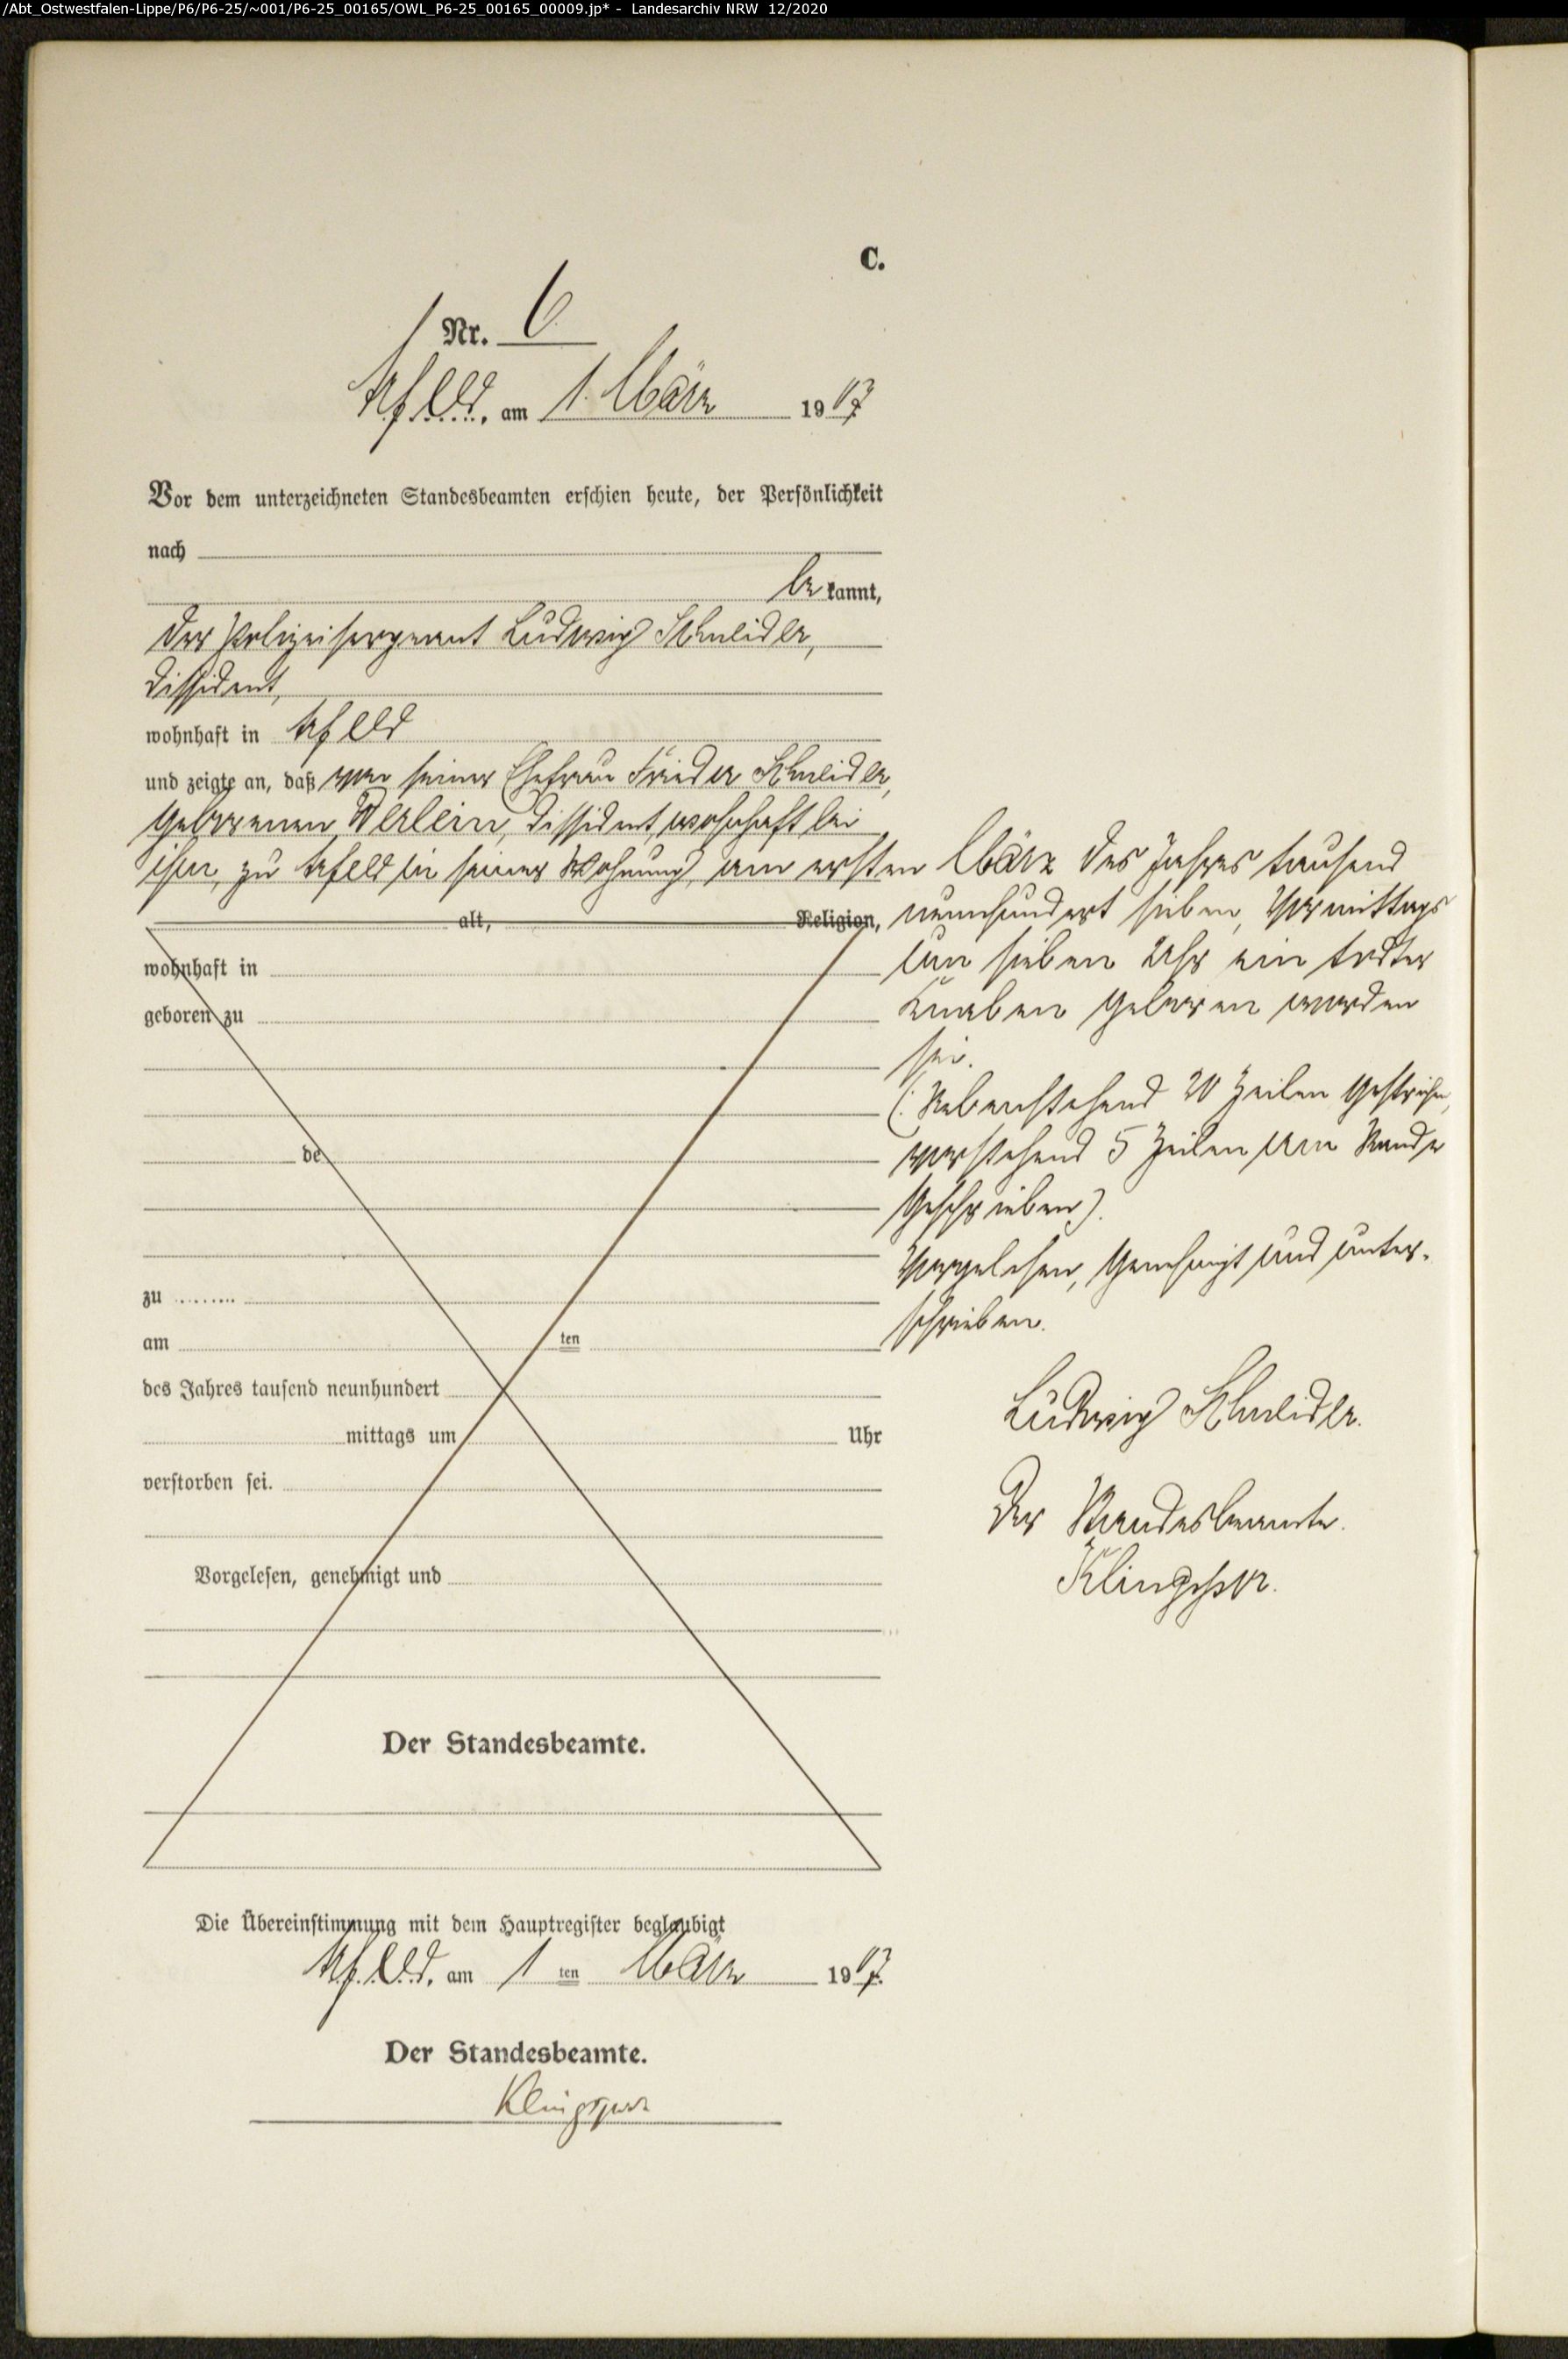 /Abt_Ostwestfalen-Lippe/P6/P6-25/~001/P6-25_00165/OWL_P6-25_00165_00009.jp* - Landesarchiv NRW 12/2020
C.
Nr. 6
am 1. März 1907
Vor dem unterzeichneten Standesbeamten erschien heute, der Persönlichkeit
nach
be kannt,
der Polizeisergeant Ludwig Schneider,
Dissident,
wohnhaft in
und zeigte an, daß von seiner Ehefrau Frieda Schneider,
geborenen Werlein, Dissident, wohnhaft bei
ihm, zu in seiner Wohnung am ersten März des Jahres tausend
alt, Religion, neunhundert sieben, Vormittags
wohnhaft in um sieben Uhr ein todter
geboren zu Knaben geboren worden
sei.
(: Nebenstehend 20 Zeilen gestrichen,
de vorstehend 5 Zeilen am Rande
geschrieben).
Vorgelesen, genehmigt und unter-
zu schrieben.
am ten
des Jahres tausend neunhundert
Ludwig Schneider.
mittags um Uhr
verstorben sei.
Der Standesbeamte.
Vorgelesen, genehmigt und
Klingspor.
Der Standesbeamte.
Die Übereinstimmung mit dem Hauptregister beglaubigt
am 1 ten März 1907.
Der Standesbeamte.
Klingspor